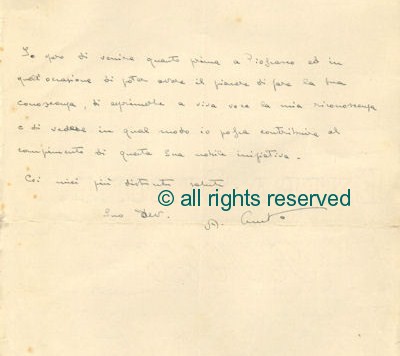 Io spero di venire quanto prima a Piofrasso ed in
quell'occasione di poter avere il piacere di fare la sua
conoscenza, di esprimerle a viva voce la mia riconoscenza
e di vedere in qual modo io possa contribuire al
compimento di questa Sua nobile iniziativa.
Coi miei più distinti saluti
© all rights reserved
Suo Dev.
A.